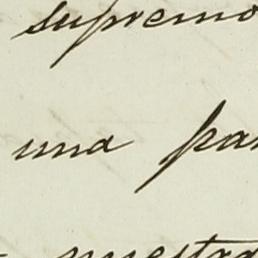 supremo
una pa
nuestra